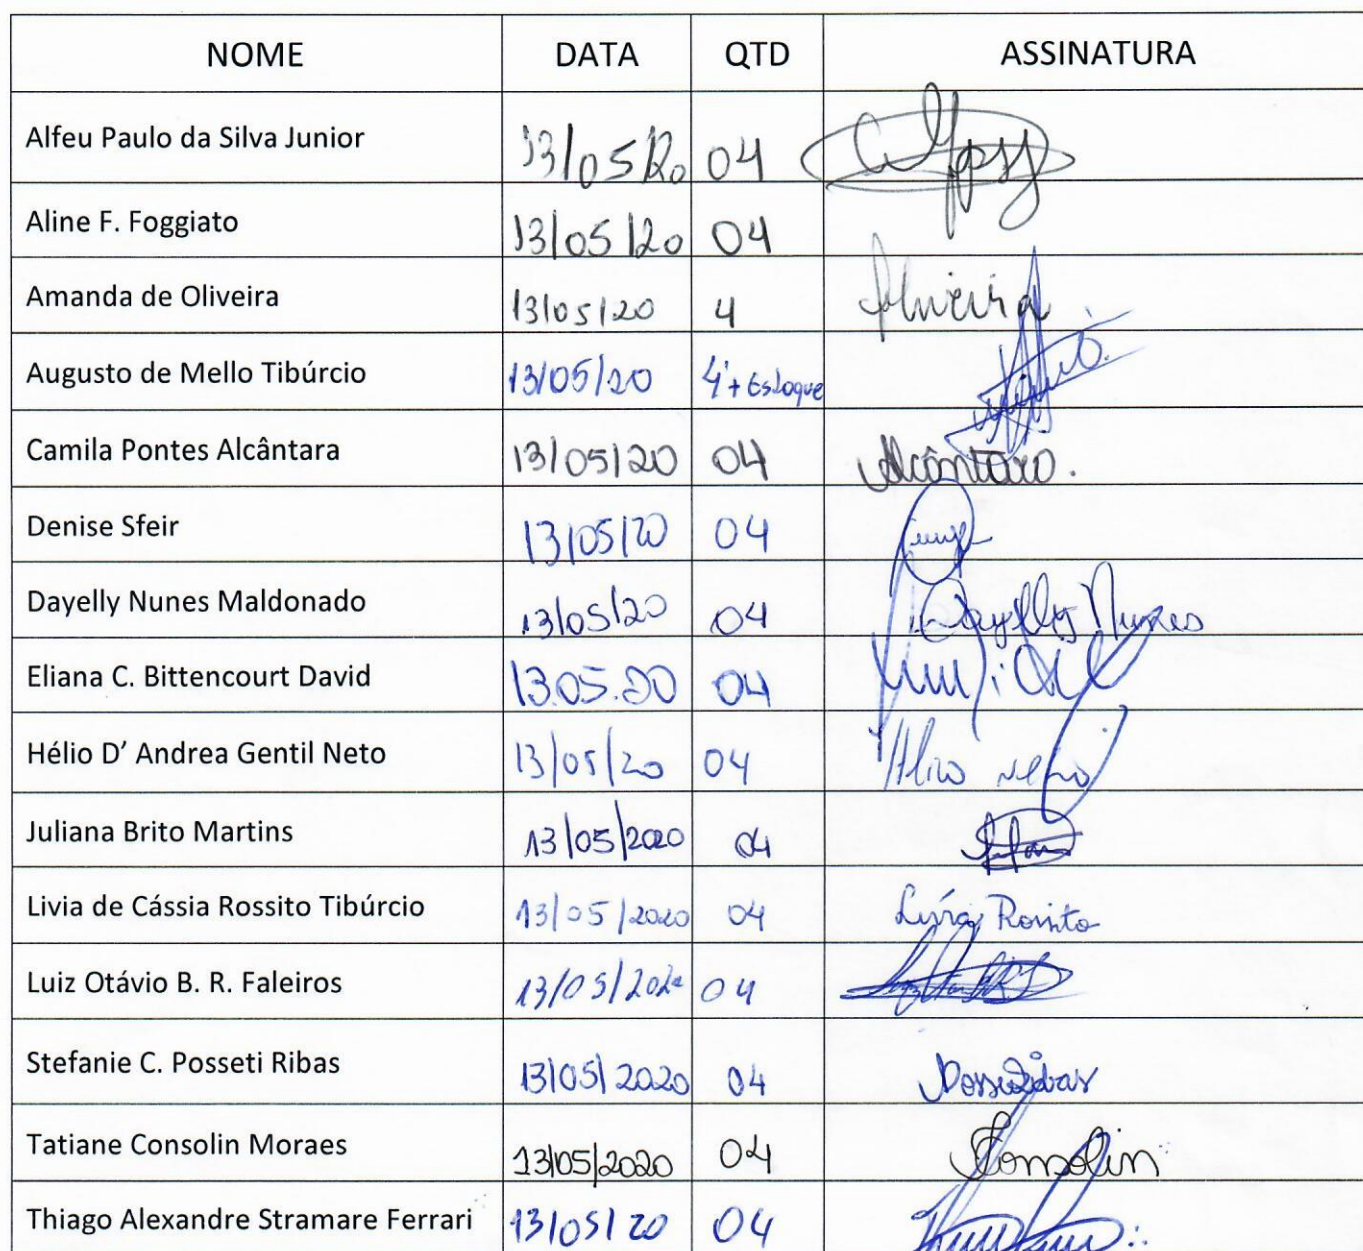 NOME DATA QTD ASSINATURA
Alfeu Paulo da Silva Junior 13/05/20 04
Aline F. Foggiato 13/05/20 04
Amanda de Oliveira 13/05/20 4 Oliveira
Augusto de Mello Tibúrcio 13/05/20 4 + Estoque
Camila Pontes Alcântara 13/05/20 04 Alcântara.
Denise Sfeir 13/05/20 04
Dayelly Nunes Maldonado 13/05/20 04 Dayelly Nunes
Eliana C. Bittencourt David 13.05.20 04
Hélio D' Andrea Gentil Neto 13/05/20 04 Hélio Neto
Juliana Brito Martins 13/05/2020 04
Livia de Cássia Rossito Tibúrcio 13/05/2020 04 Lívia Rossito
Luiz Otávio B. R. Faleiros 13/05/2020 04
Stefanie C. Posseti Ribas 13/05/2020 04
Tatiane Consolin Moraes 13/05/2020 04 Consolin
Thiago Alexandre Stramare Ferrari 13/05/20 04